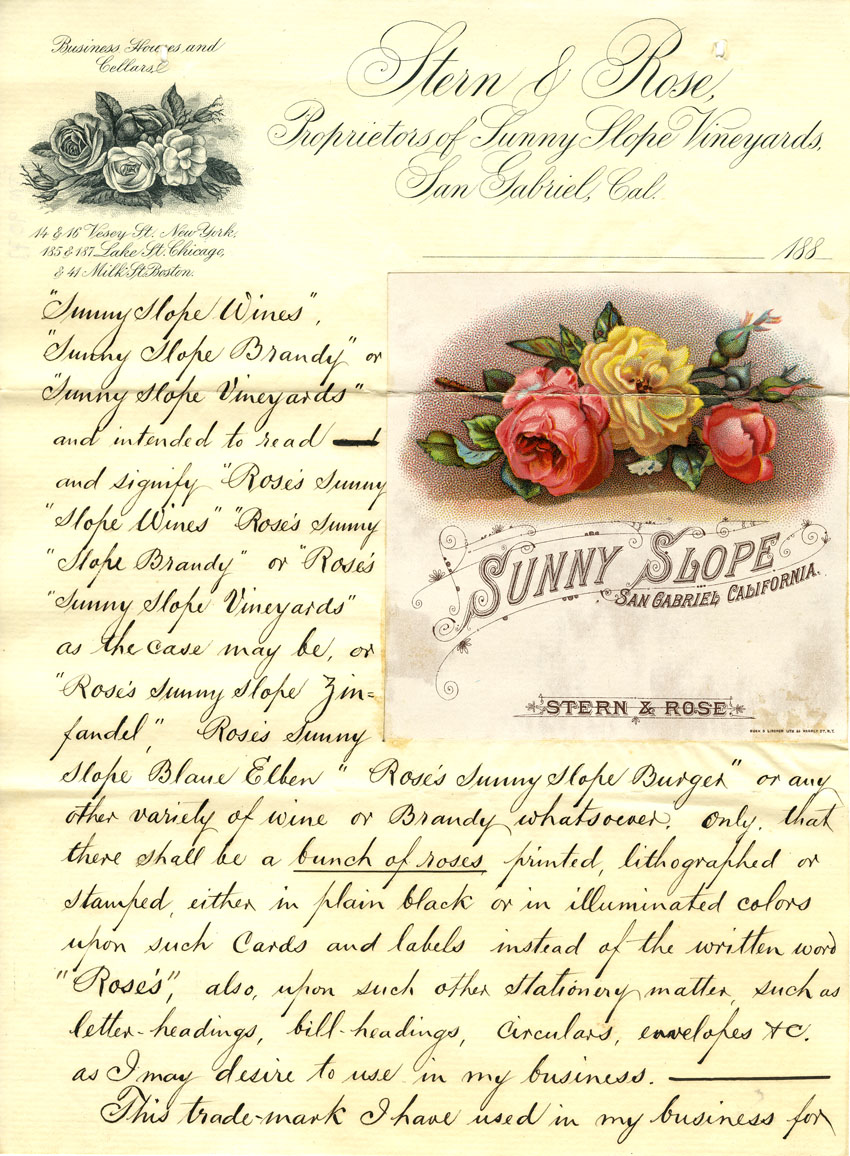 Business Houses and
Cellars,
14 & 16 Vesey St. New York.
185 & 187 Lake St. Chicago,
& 41 Milk St. Boston.
Stern & Rose,
Proprietors of Sunny Slope Vineyards,
San Gabriel, Cal.
188
"Sunny Slope Wines",
"Sunny Slope Brandy" or
"Sunny Slope Vineyards"
and intended to read
and signify "Rose's Sunny
"Slope Wines" "Rose's Sunny
"Slope Brandy" or "Rose's
"Sunny Slope Vineyards"
as the case may be, or
"Rose's Sunny Slope Zin=
fandel," Rose's Sunny
Slope Blaue Elben" Rose's Sunny Slope Burger" or any
other variety of wine or Brandy whatsoever. Only, that
there shall be a bunch of roses printed, lithographed or
stamped, either in plain black or in illuminated colors
upon such Cards and labels instead of the written word
"Rose's", also, upon such other stationery matter, such as
letter-headings, bill-headings, circulars, envelopes &c.
as I may desire to use in my business.
This trade-mark I have used in my business for
SUNNY SLOPE
SAN GABRIEL CALIFORNIA.
STERN & ROSE.